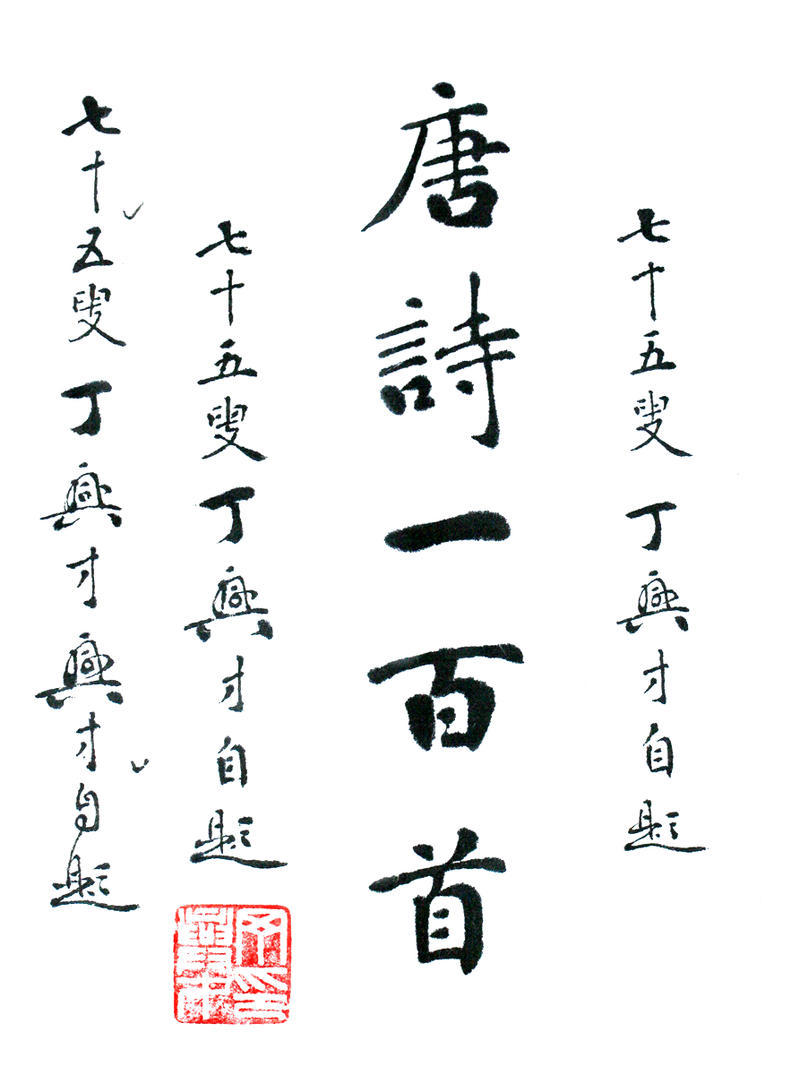 七十五叟 丁興才自題
唐詩一百首
七十五叟 丁興才自題
七十五叟 丁興才興才自題